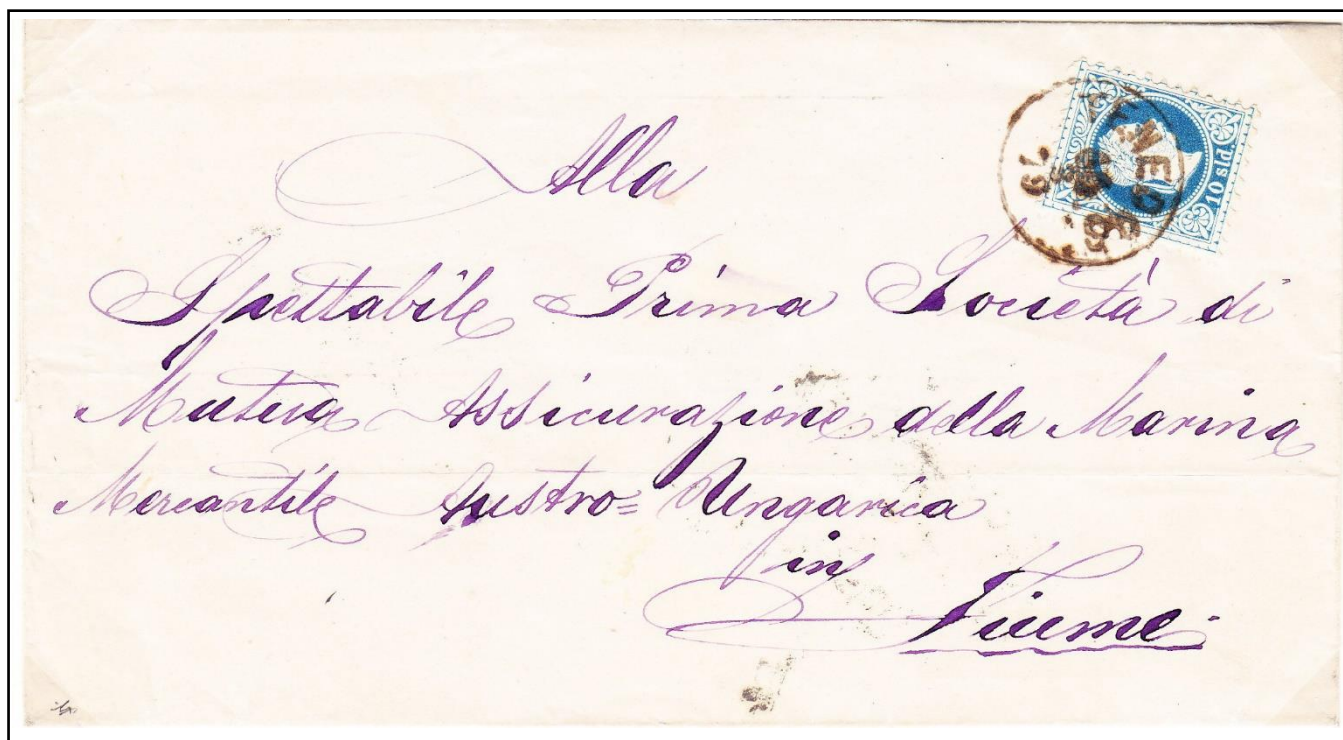 10 sld.
79
Alla
Spettabile Prima Società di
Mutua Assicurazione della Marina
Mercantile Austro= Ungarica
in
Fiume.